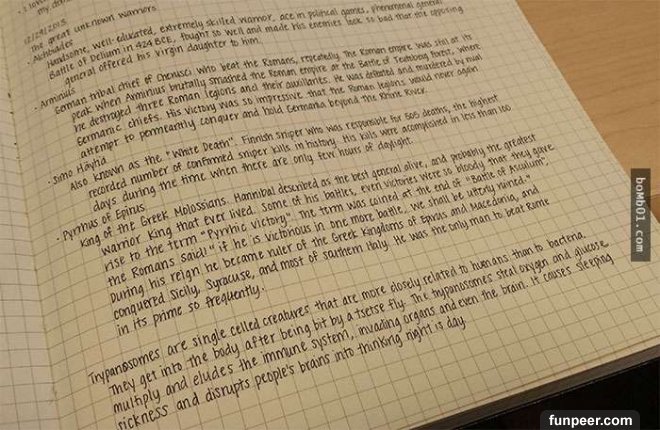 · I love
my
12/29/2013
The great unknown warriors
· Alchibiades
Handsome, well-educated, extremely skilled warrior, ace in political games, phenomenal general
Battle of Delium in 424 BCE, fought so well and made his enemies look so bad that the opposing
general offered his virgin daughter to him.
· Arminius
German tribal chief of Cherusci who beat the Romans, repeatedly. The Roman empire was still at its
peak when Arminius brutally smashed the Roman empire at the Battle of Teutoberg forest, where
he destroyed three Roman legions and their auxiliaries. He was defeated and murdered by rival
Germanic chiefs. His victory was so impressive that the Roman legions would never again
attempt to permeantly conquer and hold Germania beyond the Rhine River.
· Simo Häyhä
Also known as the "White Death". Finnish sniper who was responsible for 505 deaths, the highest
recorded number of confirmed sniper kills in history. His kills were acomplished in less than 100
days during the time when there are only few hours of daylight.
· Pyrrhus of Epirus
King of the Greek Molossians. Hannibal described as the best general alive, and probably the greatest
warrior King that ever lived. Some of his battles, even victories were so bloody that they gave
rise to the term "Pyrrhic victory". The term was coined at the end of "Battle of Asculum",
the Romans said: "if he is victorious in one more battle, we shall be utterly ruined."
During his reign he became ruler of the Greek Kingdoms of Epirus and Macedonia, and
conquered Sicily, Syracuse, and most of southern Italy. He was the only man to beat Rome
in its prime so frequently.
Trypanosomes are single celled creatures that are more closely related to humans than to bacteria.
They get into the body after being bit by a tsetse fly. The trypanosomes steal oxygen and glucose,
multiply and eludes the immune system, invading organs and even the brain. It causes sleeping
sickness and disrupts people's brains into thinking night is day.
bomb01.com
funpeer.com